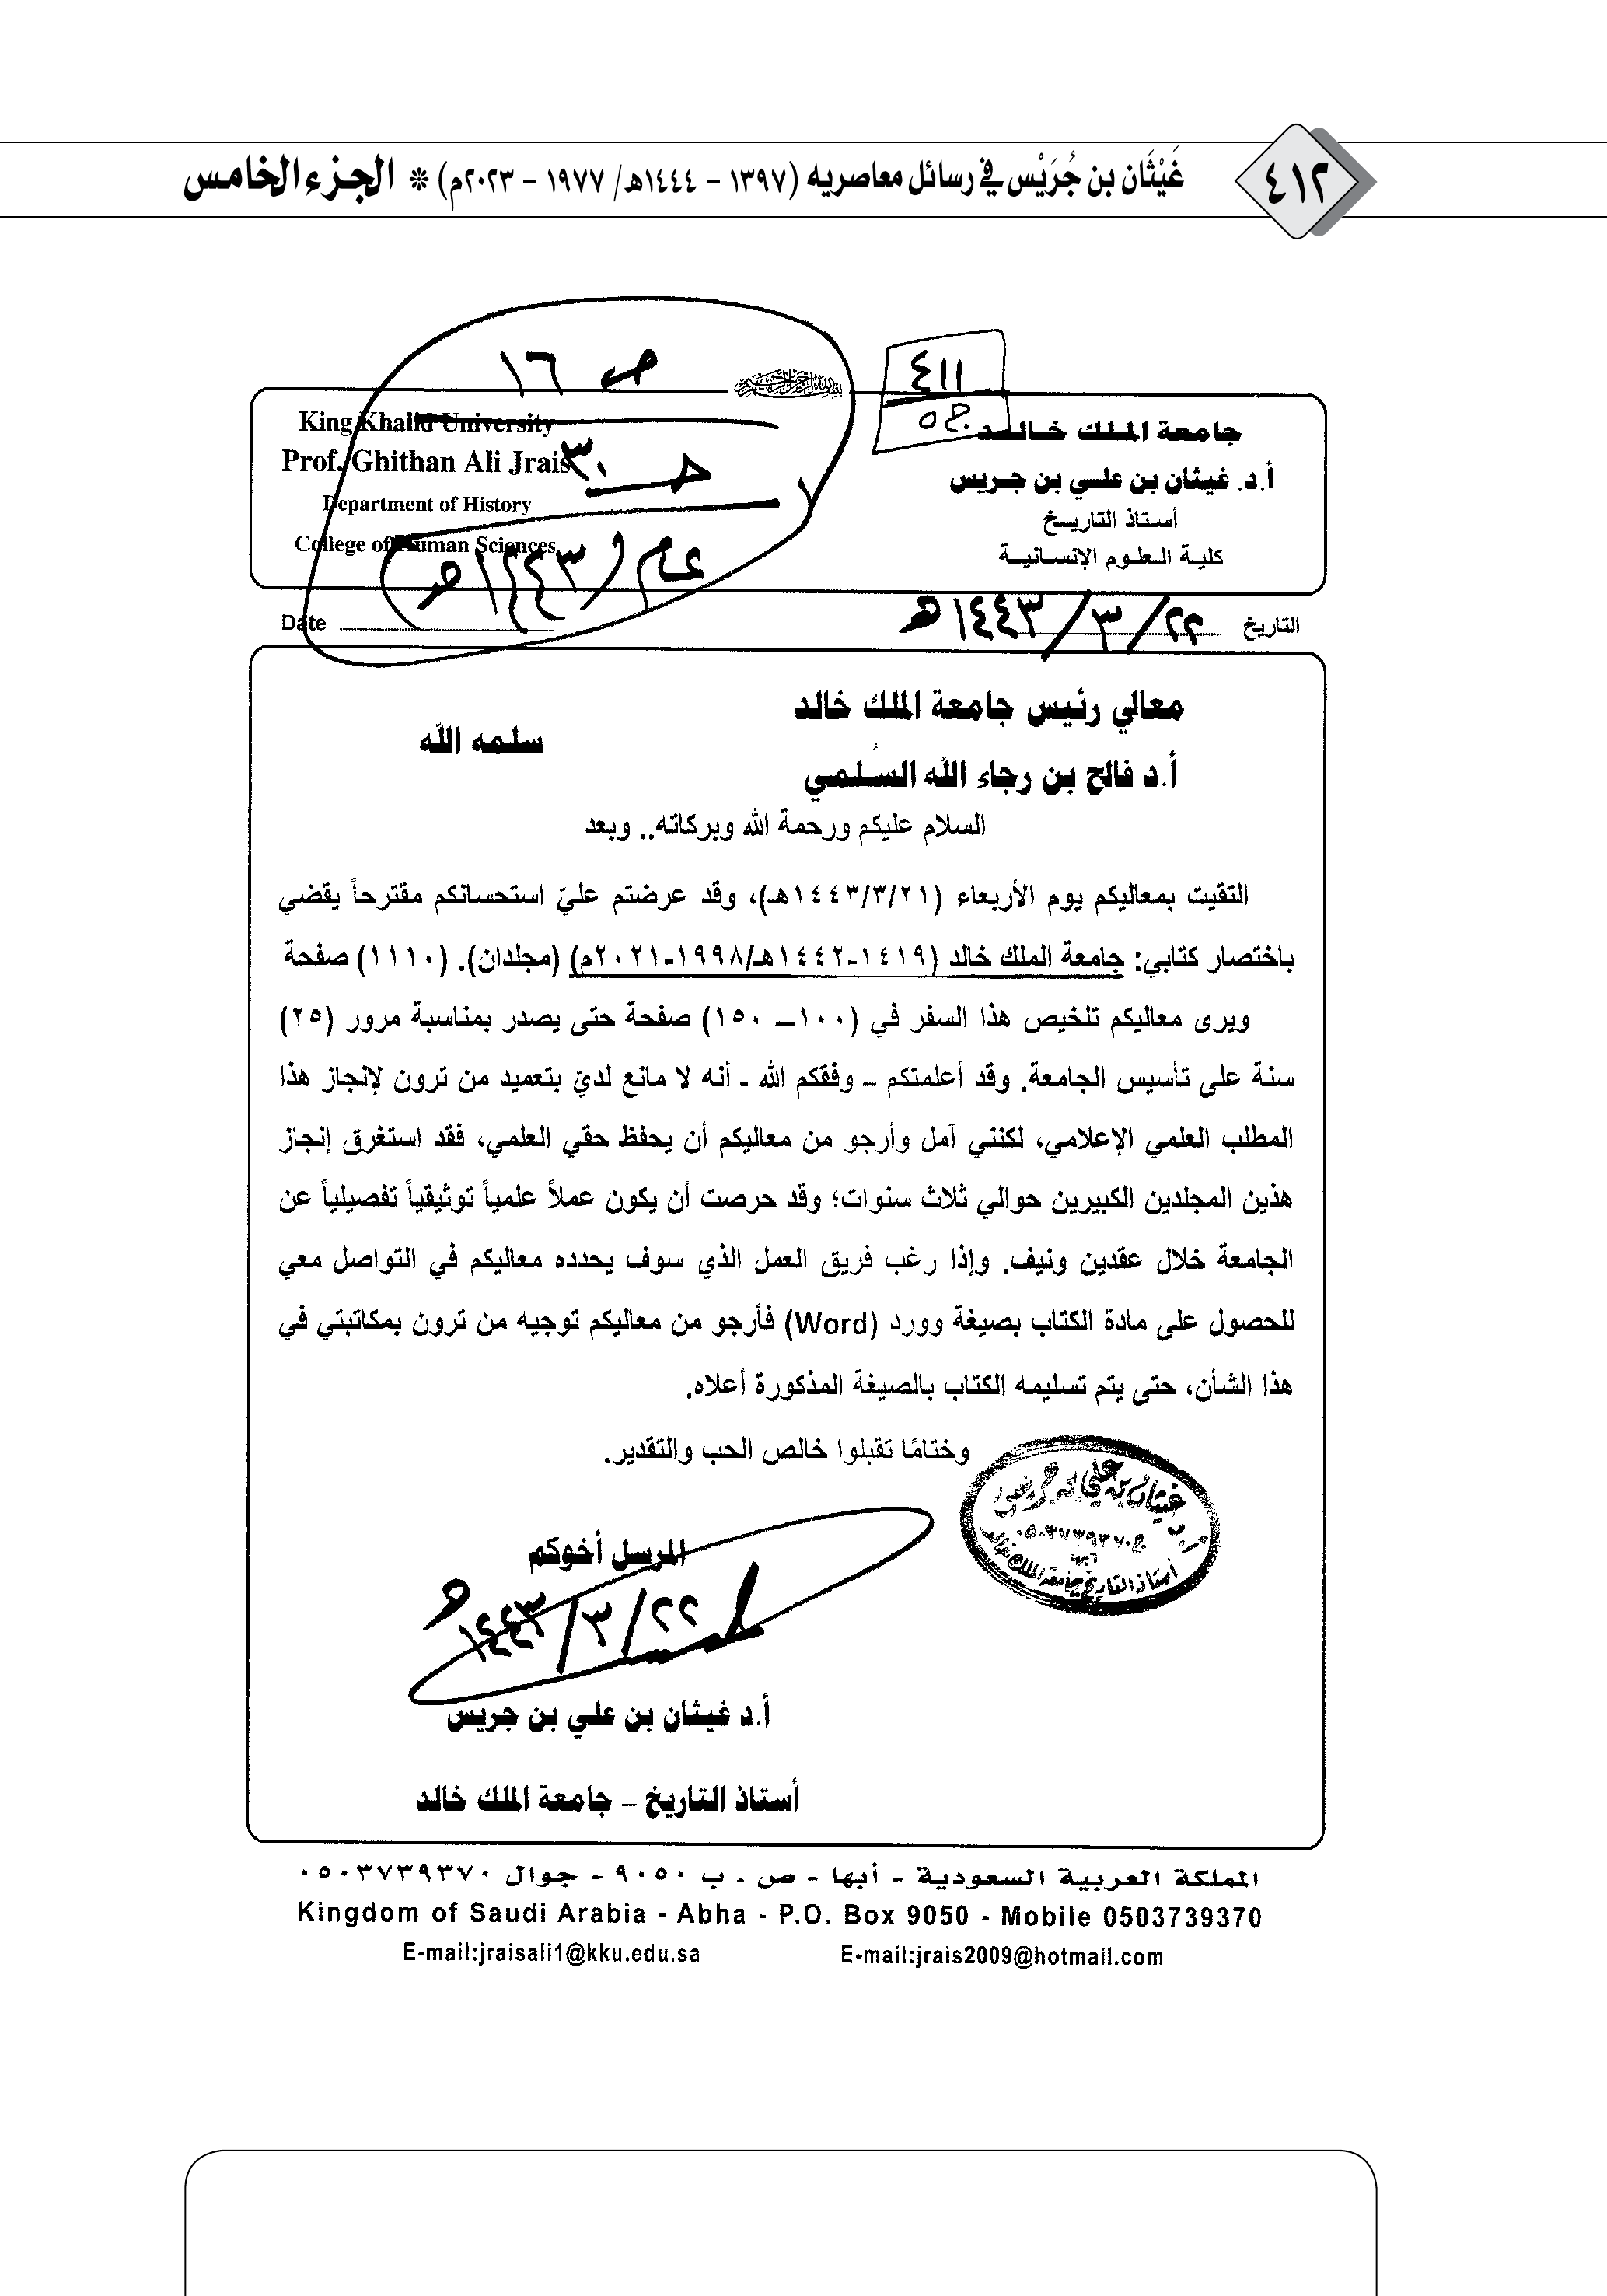 ٤١٢
غَيْثَان بن جُرَيْس في رسائل معاصريه (١٣٩٧ - ١٤٤٤هـ/ ١٩٧٧ - ٢٠٢٣م) * الجزء الخامس
٤١١
ص ١٦
جامعة الملك خالد
أ.د. غيثان بن علي بن جريس
أستاذ التاريخ
كلية العلوم الإنسانية
King Khalid University
Prof. Ghithan Ali Jrais
Department of History
College of Human Sciences
عام ١٤٤٣هـ
التاريخ ٢٢/٣/١٤٤٣هـ
Date
معالي رئيس جامعة الملك خالد
أ.د فالح بن رجاء الله السُلمي سلمه الله
السلام عليكم ورحمة الله وبركاته.. وبعد
التقيت بمعاليكم يوم الأربعاء (١٤٤٣/٣/٢١هـ)، وقد عرضتم عليّ استحسانكم مقترحاً يقضي
باختصار كتابي: جامعة الملك خالد (١٤١٩-١٤٤٢هـ/١٩٩٨-٢٠٢١م) (مجلدان). (١١١٠) صفحة
ويرى معاليكم تلخيص هذا السفر في (١٠٠– ١٥٠) صفحة حتى يصدر بمناسبة مرور (٢٥)
سنة على تأسيس الجامعة. وقد أعلمتكم – وفقكم الله - أنه لا مانع لديّ بتعميد من ترون لإنجاز هذا
المطلب العلمي الإعلامي، لكنني آمل وأرجو من معاليكم أن يحفظ حقي العلمي، فقد استغرق إنجاز
هذين المجلدين الكبيرين حوالي ثلاث سنوات؛ وقد حرصت أن يكون عملاً علمياً توثيقياً تفصيلياً عن
الجامعة خلال عقدين ونيف. وإذا رغب فريق العمل الذي سوف يحدده معاليكم في التواصل معي
للحصول على مادة الكتاب بصيغة وورد (Word) فأرجو من معاليكم توجيه من ترون بمكاتبتي في
هذا الشأن، حتى يتم تسليمه الكتاب بالصيغة المذكورة أعلاه.
وختامًا تقبلوا خالص الحب والتقدير.
غيثان بن علي بن جريس
ج٠٥٠٣٧٣٩٣٧٠
أبها
أستاذ التاريخ بجامعة الملك خالد
المرسل أخوكم
٢٢/٣/١٤٤٣هـ
أ.د غيثان بن علي بن جريس
أستاذ التاريخ – جامعة الملك خالد
المملكة العربية السعودية - أبها - ص . ب ٩٠٥٠ - جوال ٠٥٠٣٧٣٩٣٧٠
Kingdom of Saudi Arabia - Abha - P.O. Box 9050 - Mobile 0503739370
E-mail:jraisali1@kku.edu.sa E-mail:jrais2009@hotmail.com